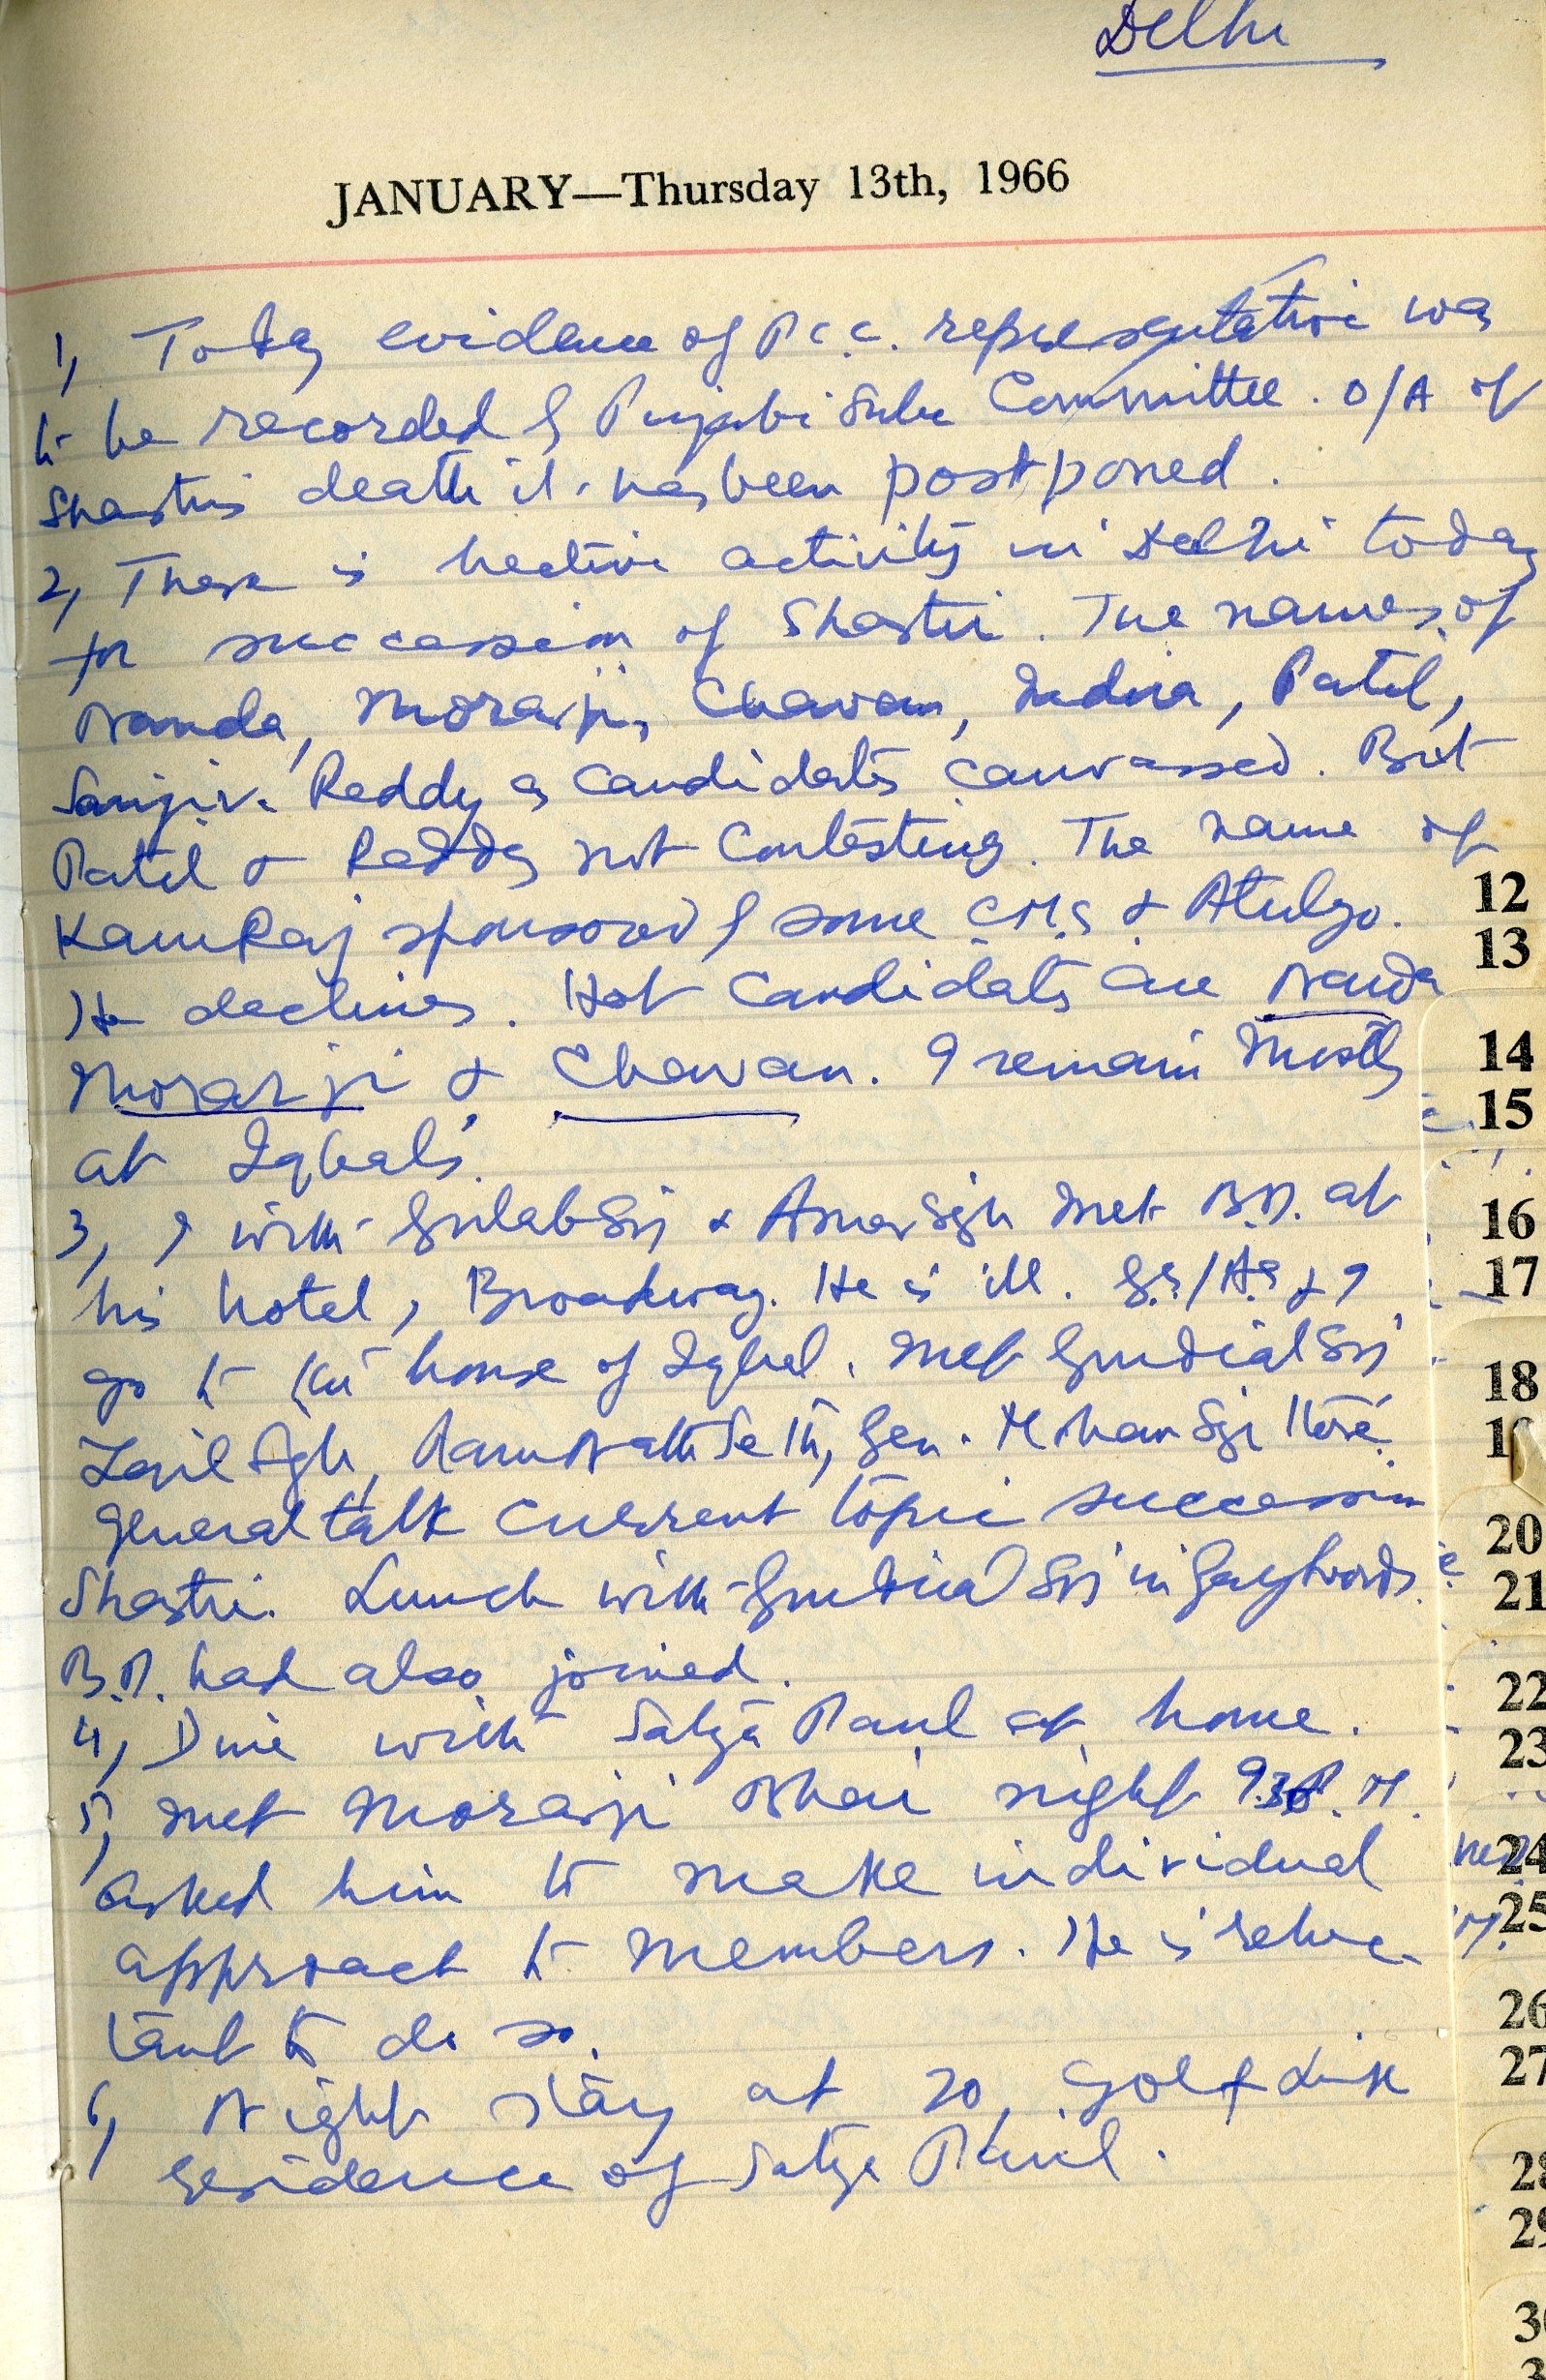 Delhi
JANUARY—Thursday 13th, 1966
1, Today evidence of P.C.C. representative was
to be recorded by Punjabi Suba Committee. O/A of
Shastri's death it has been postponed.
2, There is hective activity in Delhi today
for succession of Shastri. The names of
Nanda, Morarji, Chavan, Indira, Patil,
Sanjiv Reddy as candidates canvassed. But
Patil & Reddy not contesting. The name of
KamRaj sponsored by some CMs & Atulya.
He declines. Hot candidates are Nanda
Morarji & Chavan. I remain mostly
at Iqbal's.
3, I with Gulab Sgh & Amar Sgh met B.D. at
his hotel, Broadway. He is ill. G.S/A.S & I
go to the house of Iqbal. Met Gurdial Sgh
Zail Sgh, Ram Nath Seth, Gen. Mohan Sgh there.
General talk current topic succession
Shastri. Lunch with Gurdial Sgh in Gaylords.
B.D. had also joined.
4, Dine with Satya Paul at home.
5, Met Morarji Bhai night 9.30 P.M.
asked him to make individual
approach to members. He is reluc-
tant to do so.
6, Night stay at 20, Golf Link
residence of Satya Paul.
12
13
14
15
16
17
18
20
21
22
23
24
25
26
27